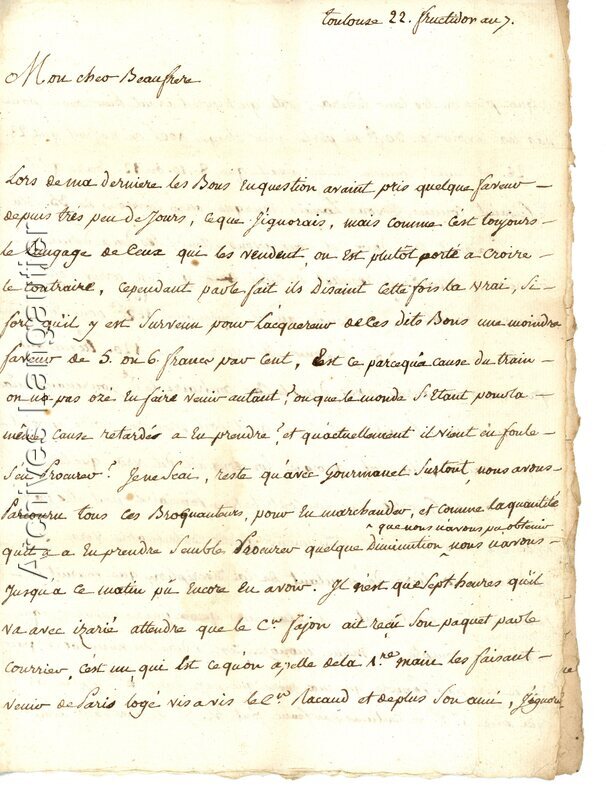 Toulouse 22. fructidor an 7.
Mon cher Beaufrere
Lors de ma derniere les Bons en question avaint pris quelque faveur
depuis très peu de Jours, ce que J'ignorais, mais comme c'est toujours
le langage de Ceux qui les vendent, on Est plutôt porté a Croire
le Contraire, Cependant par le fait ils Disaint Cette fois la vrai, Si
fort qu'il y est Survenu pour L'acquereur de Ces dits Bons une moindre
faveur de 5. ou 6 francs par Cent, Est ce parcequ'a cause du train
on n'a pas ozé En faire venir autant? ou que le monde S'Etant pour la
même Cause retardés a En prendre? et qu'actuellement il vient en foule
S'en Procurer? Je ne Scai, reste qu'avec Gourmanet Surtout, nous avons
Parcouru tous ces Broquanteurs, pour En marchander, et comme la quantité
qu'il y a a En prendre Semble Procurer quelque Diminution ^ que nous n'avons pu obtenir nous n'avons
Jusqu'a ce matin pû Encore En avoir. Il n'est que Sept heures qu'il
va avec izarié attendre que le C.en Fajon ait reçu Son paquet par le
Courrier, c'est un qui Est ce qu'on apelle de la 1.re main les faisant
venir de Paris logé vis a vis le C.en Racaud et de plus Son ami, J'ignore
Archives Largantier